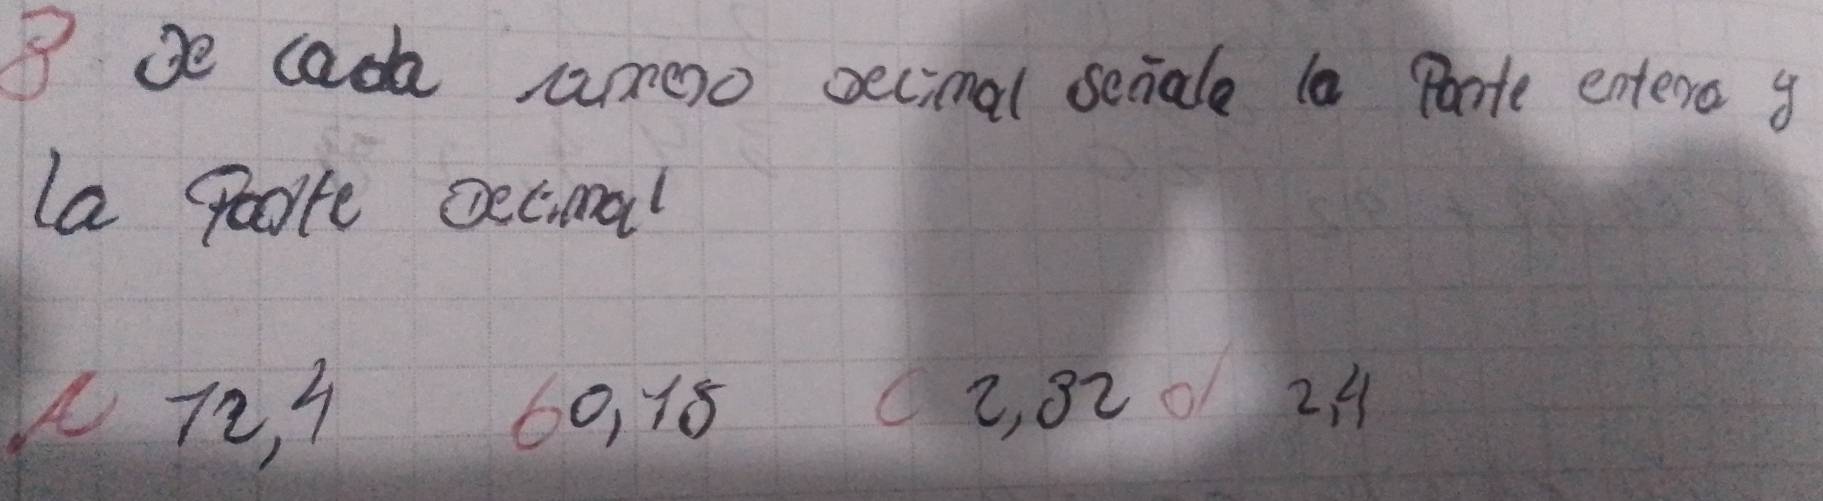 8 De cada numero decimal señale la Parte entera y
la Parte Decimal
A 12,4 b 0,18 C 2,82 d 2,4